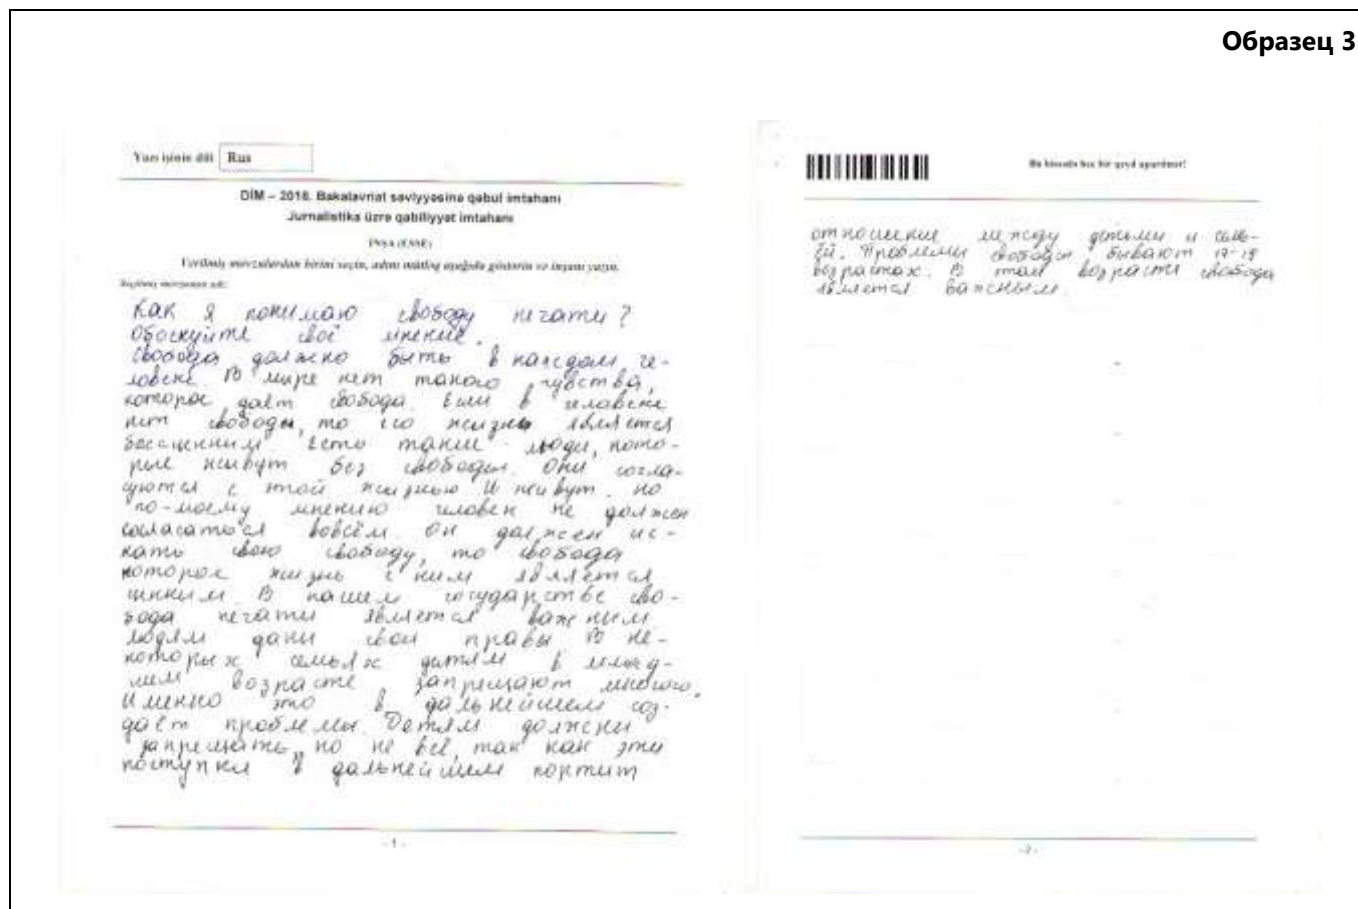 Образец 3
Yazı işinin dili Rus
DİM – 2018. Bakalavriat səviyyəsinə qəbul imtahanı
Jurnalistika üzrə qabiliyyət imtahanı
İNŞA (ESSE)
Verilmiş mövzulardan birini seçin, adını mütləq aşağıda göstərin və inşanı yazın.
Seçilmiş mövzunun adı:
Как я понимаю свободу печати?
Обоснуйте своё мнение.
Свобода должно быть в каждом че-
ловеке. В мире нет такого чувства,
которое даёт свобода. Если в человеке
нет свободы, то его жизнь является
бессценним. Есть такие люди, кото-
рые живут без свободы. Они согла-
суются с этой жизнью и живут. Но
по-моему мнению человек не должен
согласаться вовсем. Он должен ис-
кать свою свободу, то свобода
которая жизнь с ним является
В нашем государстве сво-
бода печати является важним
людям дани свои правы. В не-
которых семьях детям в млад-
шем возрасте запрещают многого.
Именно это в дальнейшем соз-
даёт проблемы. Детям должны
запрещать, но не всё, так как эти
поступки в дальнейшем портит
- 1 -
Bu hissədə heç bir qeyd aparılmır!
отношение между детьми и семь-
ёй. Проблеми свободи бывают 17-18
возрастах. В там возрасте свобода
является важным.
- 2 -